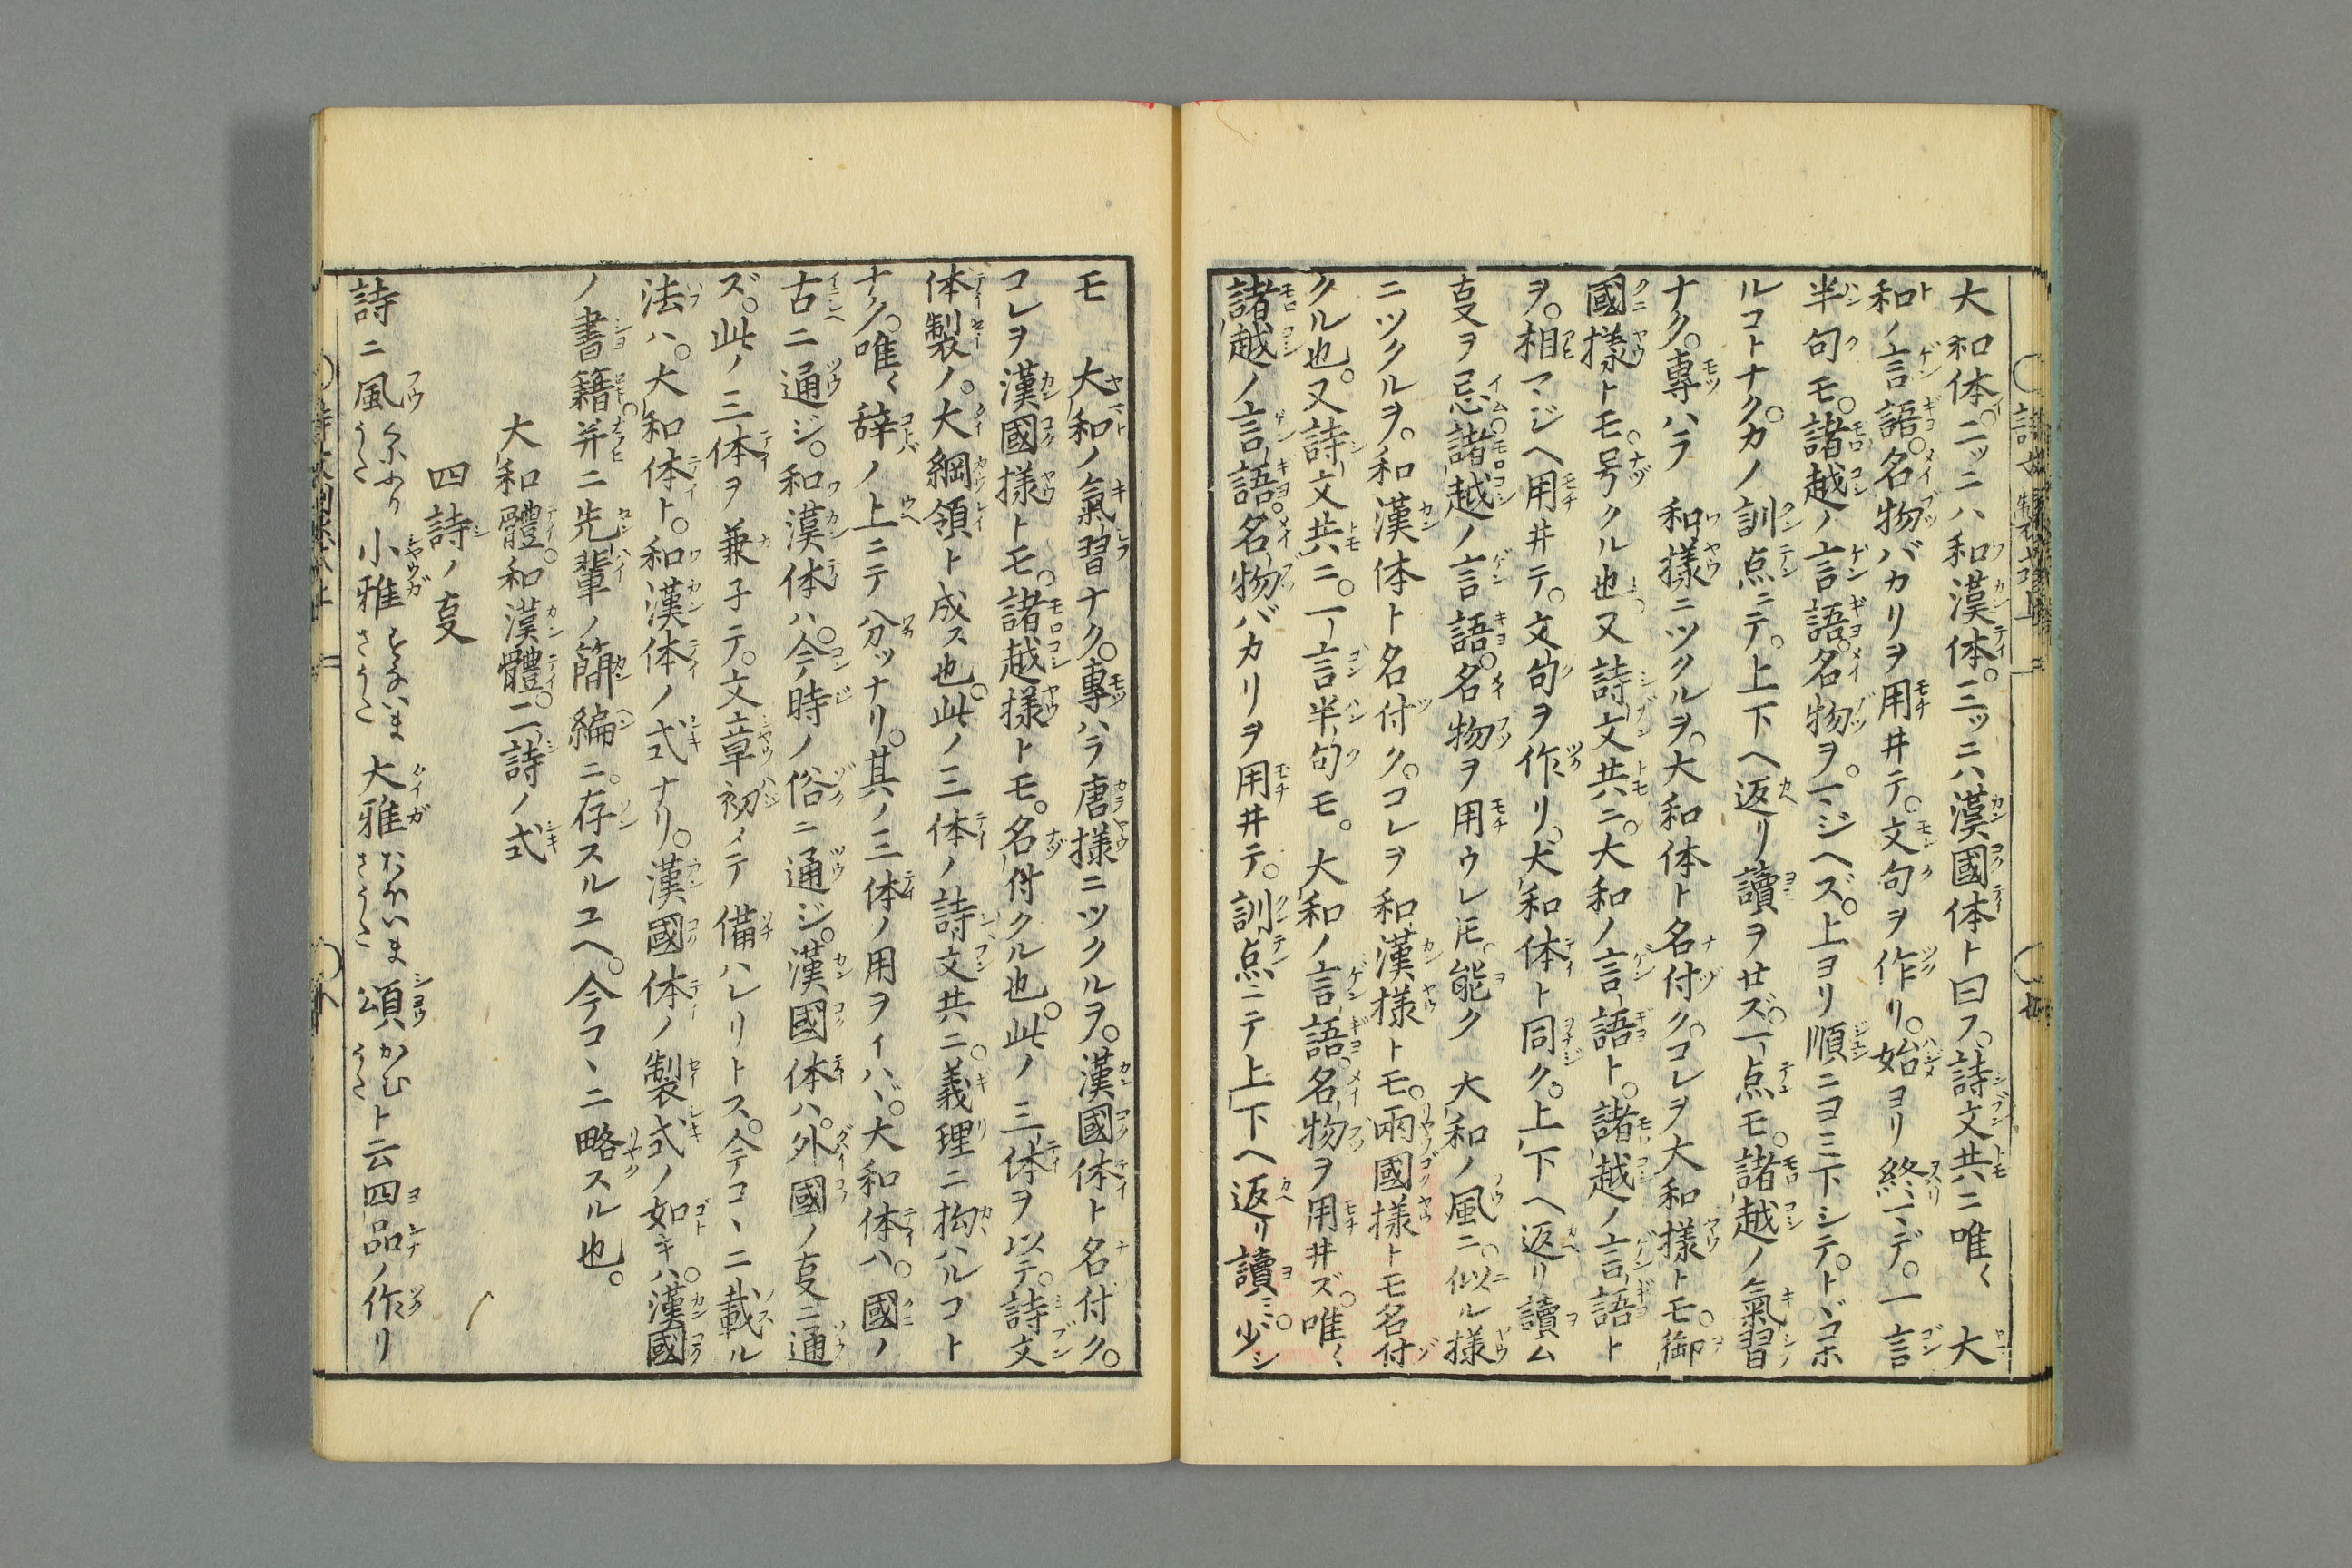 大和体。二ッニハ和漢体。三ッニハ漢國体ト曰フ。詩文共ニ唯〻　大
和ノ言語。名物バカリヲ用井テ。文句ヲ作リ。始ヨリ終マデ。一言
半句モ。諸越ノ言語。名物ヲ。マジヘズ。上ヨリ順ニヨミ下シテ。トヾコホ
ルコトナク。カノ訓点ニテ。上下ヘ返リ讀ヲセズ。一点モ。諸越ノ氣習
ナク。專ハラ　和樣ニツクルヲ。大和体ト名付ク。コレヲ大和樣トモ。御
國樣トモ号クル也。又詩文共ニ。大和ノ言語ト。諸越ノ言語ト
ヲ。相マジヘ用井テ。文句ヲ作リ。大和体ト同ク。上下ヘ返リ讀ム
叓ヲ忌。諸越ノ言語。名物ヲ用ウレ𪜈。能ク　大和ノ風ニ。似ル樣
ニツクルヲ。和漢体ト名付ク。コレヲ和漢樣トモ。兩國樣トモ名付
クル也。又詩文共ニ。一言半句モ。大和ノ言語。名物ヲ用井ズ。唯〻
諸越ノ言語。名物バカリヲ用井テ。訓点ニテ上下ヘ返リ讀ミ。少シ
モ　大和ノ氣習ナク。專ハラ唐樣ニツクルヲ。漢國体ト名付ク。
コレヲ漢國樣トモ。諸越樣トモ。名付クル也。此ノ三体ヲ以テ。詩文
体製ノ。大綱領ト成ス也。此ノ三体ノ詩文共ニ。義理ニ拘ハルコト
ナク。唯〻辞ノ上ニテ分ッナリ。其ノ三体ノ用ヲイハヾ。大和体ハ。國ノ
古ニ通ジ。和漢体ハ。今時ノ俗ニ通ジ。漢國体ハ。外國ノ叓ニ通
ズ。此ノ三体ヲ兼子テ。文章初メテ備ハレリトス。今コヽニ載ル
法ハ。大和体ト。和漢体ノ式ナリ。漢國体ノ製式ノ如キハ。漢國
ノ書籍。并ニ先輩ノ簡編ニ。存スルユヘ。今コヽニ略スル也。
大和體。和漢體。二詩ノ式
四詩ノ叓
詩ニ風　小雅　大雅　頌ト云四品ノ作リ